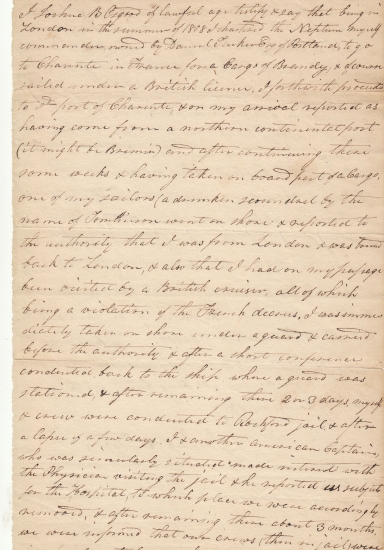 I Joshua B Osgood of lawful age testify & say that being in
London in the summer of 1808 I chartered the Neptune myself
commander owned by Samuel Tucker Esq of Portland, to go
to Charente in France for a Cargo of Brandy, & of course
sailed under a British licence, I forthwith proceeded
to sd port of Charente, & on my arrival reported as
having come from a northern continental port
(it might be Bremin) and after continuing there
some weeks & having taken on board part of a Cargo,
one of my sailors (a drunken scoundrel by the
name of Tomlinson went on shore & reported to
the authority that I was from London & was bound
back to London, & also that I had on my passage
been visited by a British cruiser, all of which
being a violation of the French decrees, I was imme
diately taken on shore under a guard & carried
before the authority & after a short conference
conducted back to the ship where a guard was
stationed, & after remaining there 2 or 3 days, myself
& crew were conducted to Rochford jail, & after
a lapse of a few days. I & another american Captain,
who was similarly situated made interest with
the Physician visiting the jail & he reported us subjects
for the Hospital, to which place we were accordingly
removed, & after remaining there about 3 months,
we were informed that our crews (then in jail) were